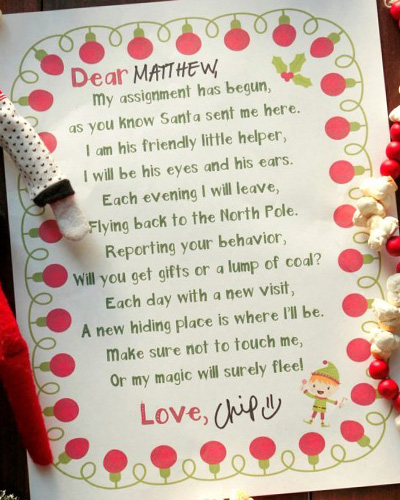 Dear MATTHEW,
My assignment has begun,
as you know Santa sent me here.
I am his friendly little helper,
I will be his eyes and his ears.
Each evening I will leave,
Flying back to the North Pole.
Reporting your behavior,
Will you get gifts or a lump of coal?
Each day with a new visit,
A new hiding place is where I'll be.
Make sure not to touch me,
Or my magic will surely flee!
Love, Chip